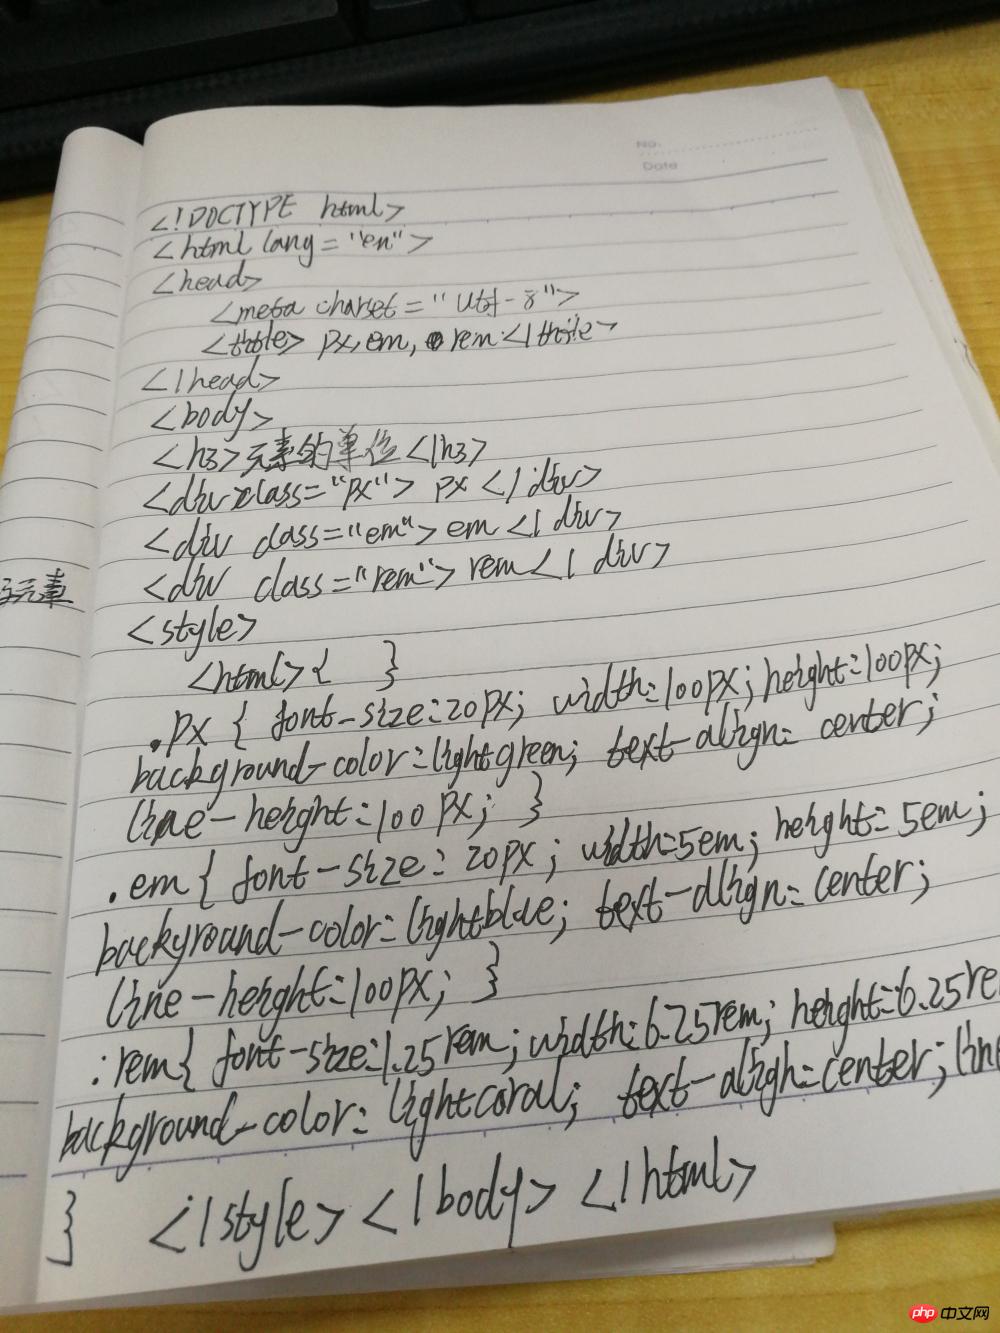 No.
Date
<!DOCTYPE html>
<html lang="en">
<head>
<meta charset="utf-8">
<title> px,em, rem </title>
</head>
<body>
<h3>元素的单位</h3>
<div class="px"> px </div>
<div class="em"> em </div>
<div class="rem"> rem </div>
元素
<style>
<html>{ }
.px { font-size:20px; width:100px; height:100px;
background-color:lightgreen; text-align: center;
line-height:100px; }
.em { font-size: 20px; width:5em; height: 5em;
background-color: lightblue; text-align: center;
line-height:100px; }
.rem{ font-size:1.25rem; width:6.25rem; height:6.25rem
background-color: lightcoral; text-align:center; line
} </style> </body> </html>
php 中文网